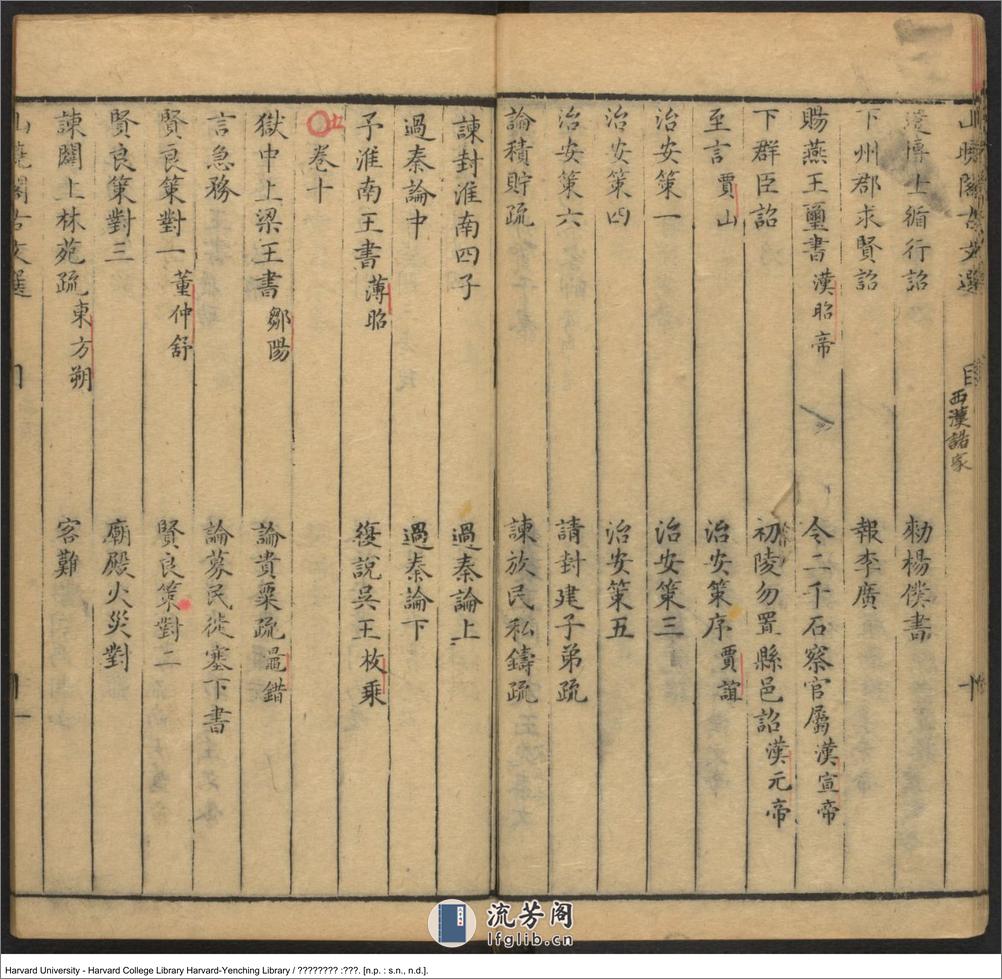 山曉閣古文選 目 十
西漢諸家
遣博士循行詔 勅楊僕書
下州郡求賢詔 報李廣
賜燕王璽書漢昭帝 令二千石察官屬漢宣帝
下群臣詔 初陵勿置縣邑詔漢元帝
至言賈山 治安策序賈誼
治安策一 治安策三
治安策四 治安策五
治安策六 請封建子弟疏
論積貯疏 諫放民私鑄疏
諫封淮南四子 過秦論上
過秦論中 過秦論下
予淮南王書薄昭 復說吳王枚乘
卷十
獄中上梁王書鄒陽 論貴粟疏鼂錯
言急務 論募民徙塞下書
賢良策對一董仲舒 賢良策對二
賢良策對三 廟殿火災對
諫闢上林苑疏東方朔 客難
山曉閣古文選
流芳阁
lfglib.cn
Harvard University - Harvard College Library Harvard-Yenching Library / ???????? :???. [n.p. : s.n., n.d.].